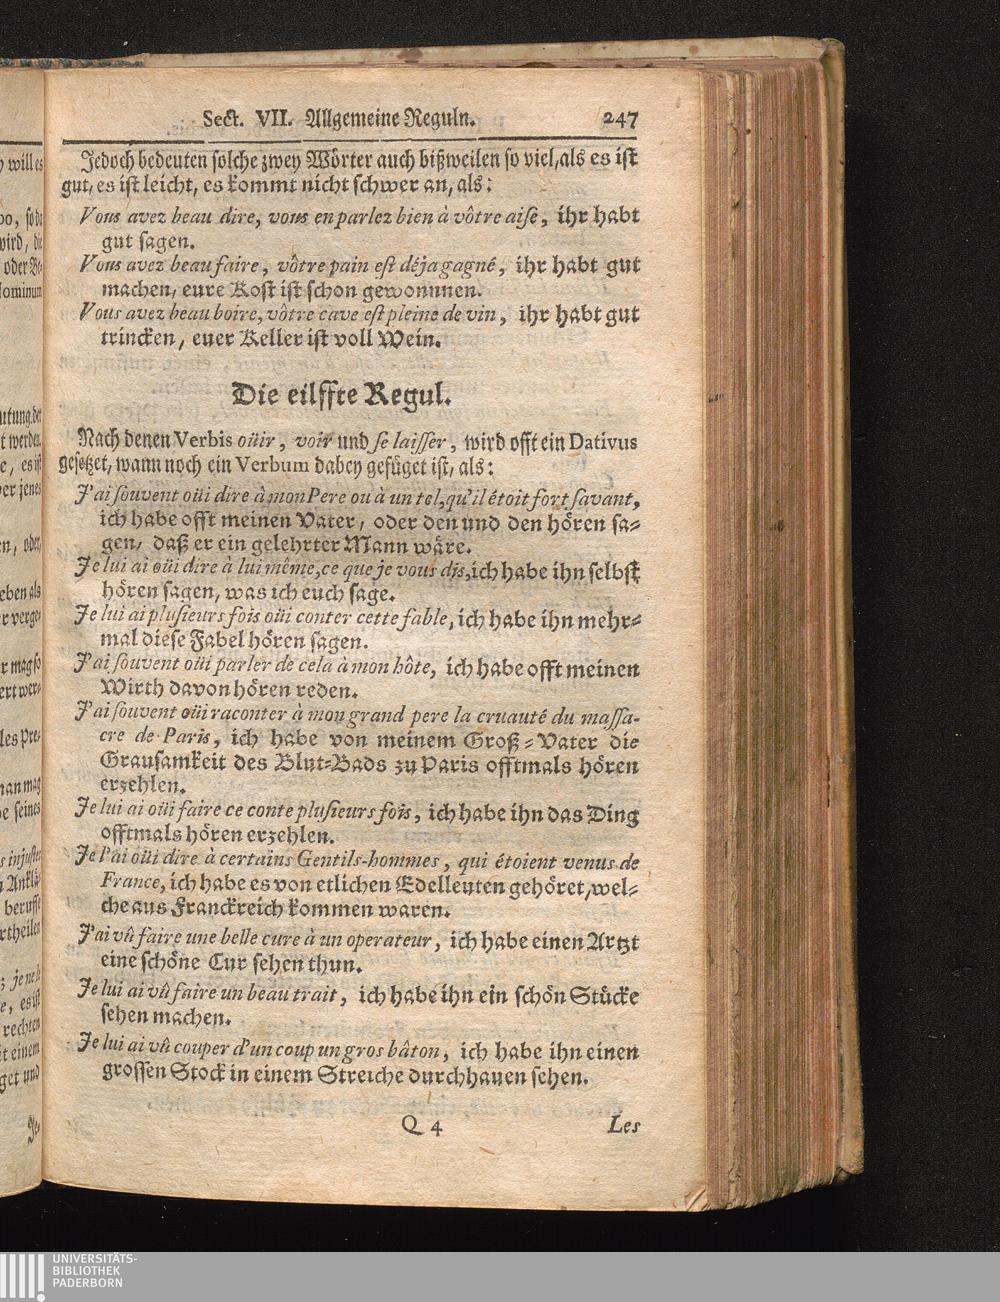 Sect. VII. Allgemeine Reguln. 247
Jedoch bedeuten solche zwey Wörter auch bißweilen so viel, als es ist
gut, es ist leicht, es kommt nicht schwer an, als:
Vous avez beau dire, vous en parlez bien à vôtre aise, ihr habt
gut sagen.
Vous avez beau faire, vôtre pain est déja gagné, ihr habt gut
machen, eure Kost ist schon gewonnnen.
Vous avez beau boire, vôtre cave est pleine de vin, ihr habt gut
trincken, euer Keller ist voll Wein.
Die eilffte Regul.
Nach denen Verbis oüir, voir und se laisser, wird offt ein Dativus
gesetzet, wann noch ein Verbum dabey gefüget ist, als:
J'ai souvent oüi dire à mon Pere ou à un tel, qu'il étoit fort savant,
ich habe offt meinen Vater, oder den und den hören sa-
gen, daß er ein gelehrter Mann wäre.
Je lui ai oüi dire à lui même, ce que je vous dis, ich habe ihn selbst
hören sagen, was ich euch sage.
Je lui ai plusieurs fois oüi conter cette fable, ich habe ihn mehr-
mal diese Fabel hören sagen.
J'ai souvent oüi parler de cela à mon hôte, ich habe offt meinen
Wirth davon hören reden.
J'ai souvent oüi raconter à mon grand pere la cruauté du massa-
cre de Paris, ich habe von meinem Groß-Vater die
Grausamkeit des Blut-Bads zu Paris offtmals hören
erzehlen.
Je lui ai oüi faire ce conte plusieurs fois, ich habe ihn das Ding
offtmals hören erzehlen.
Je l'ai oüi dire à certains Gentils-hommes, qui étoient venus de
France, ich habe es von etlichen Edelleuten gehöret, wel-
che aus Franckreich kommen waren.
J'ai vû faire une belle cure à un operateur, ich habe einen Artzt
eine schöne Cur sehen thun.
Je lui ai vû faire un beau trait, ich habe ihn ein schön Stücke
sehen machen.
Je lui ai vû couper d'un coup un gros bâton, ich habe ihn einen
grossen Stock in einem Streiche durchhauen sehen.
Q 4 Les
UNIVERSITÄTS-
BIBLIOTHEK
PADERBORN